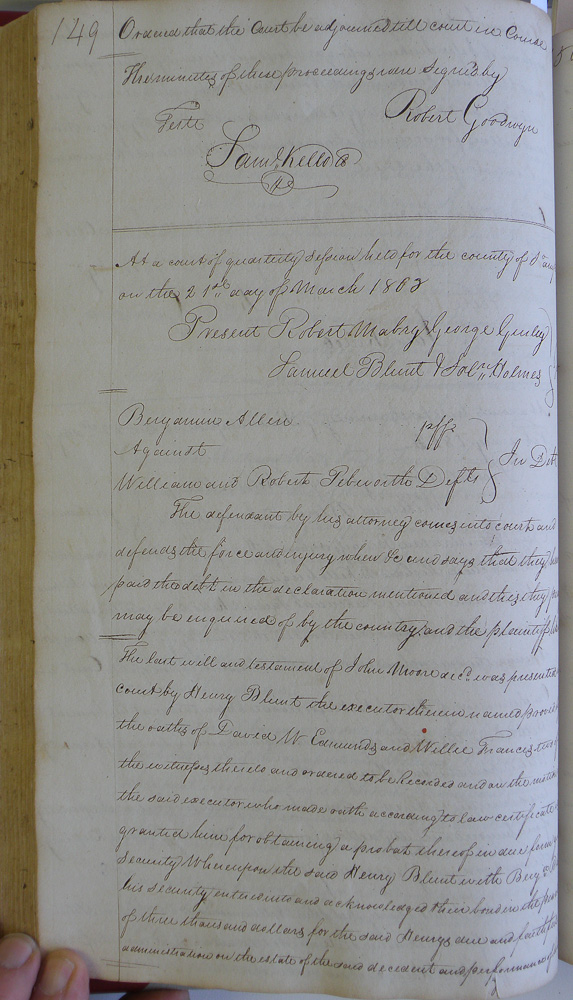 149
Ordered that the Court be adjourned till court in Course
The minutes of these proceedings were Signed by
Teste
Robert Goodwyn
Saml. Kello
At a court of quarterly Session held for the county of
on the 21st day of March 1803
Present Robert Mabry George Gurley
Samuel Blunt & Holmes
Benjamin Allen
plff
Against
In
William and Robert Pebworth Defts
The defendant by his attorney comes into court and
defends the force and injury when &c and says that they
paid the debt in the declaration mentioned and this they
may be enquired of by the country and the plaintiff
The last will and testament of John Moore decd. was presented
court by Henry Blunt the executor therein named
the oaths of David W Edmunds and Willie Francis
the witnesses thereto and ordered to be Recorded and on the
the said executor who made oath according to law certificate
granted him for obtaining a probat thereof in due form
security Whereupon the said Henry Blunt with
his security entered into and acknowledged their bond in the
of three thousand dollars for the said Henrys due and
administration on the estate of the said decedent and performance